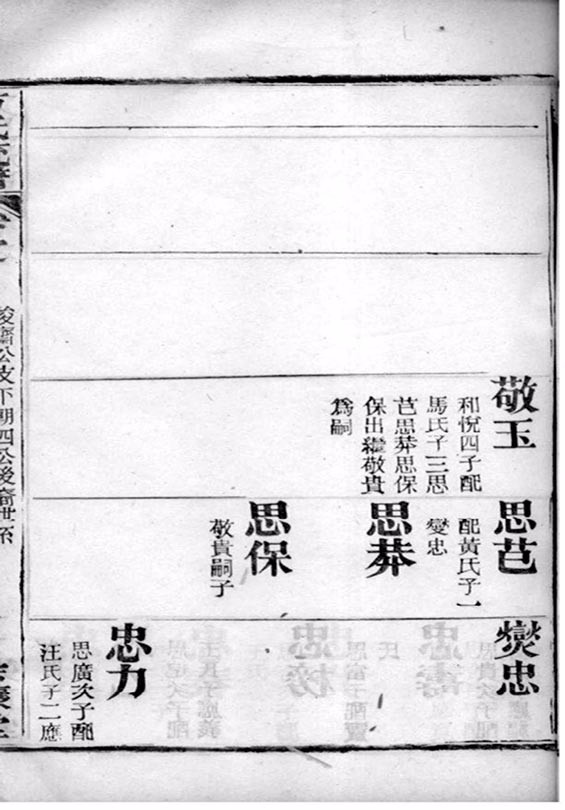 敬玉
和悅四子配
馬氏子三思
芑思莽思保
保出繼敬貴
爲嗣
思芑
配黃氏子一
燮忠
思莽
思保
敬貴嗣子
燮忠
忠力
思廣次子配
汪氏子二應
公支下朝四公後裔世系